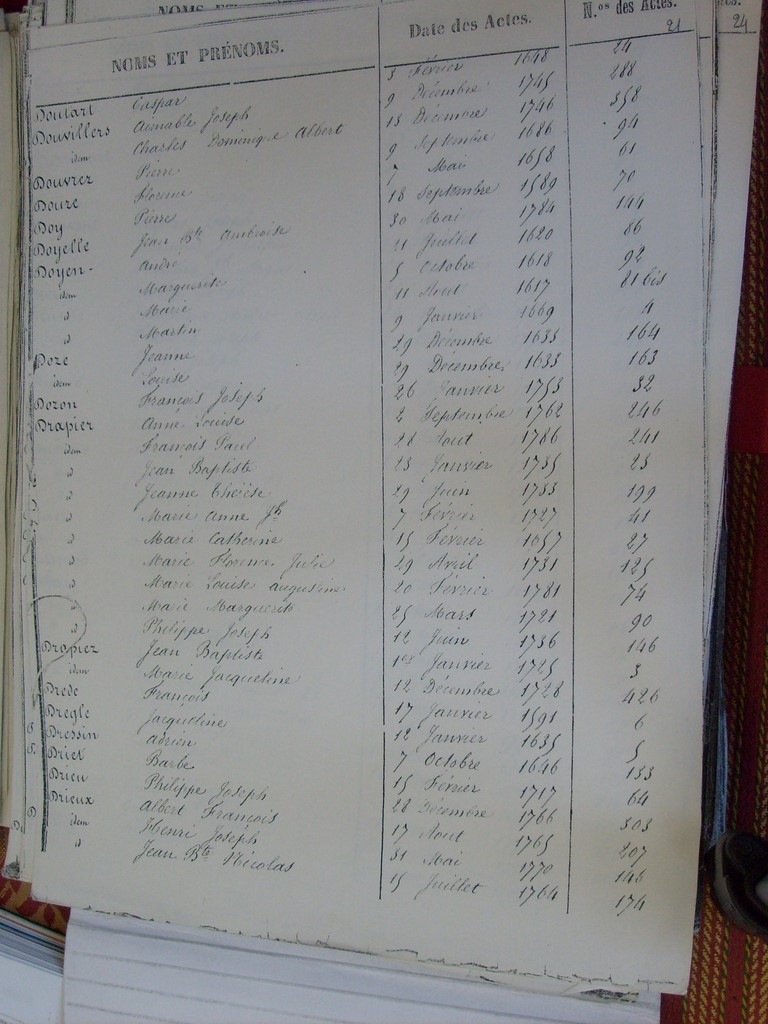 NOMS ET PRÉNOMS. Date des Actes. N.os des Actes.
21 24
Doutart Caspar 3 Février 1648 24
Douvillers Aimable Joseph 9 Décembre 1745 288
idem Charles Dominique Albert 13 Décembre 1746 358
Douvrez Pierre 9 Septembre 1686 94
Douze Florence 7 Mai 1658 61
Doy Pierre 18 Septembre 1589 70
Doyelle Jean Bte Ambroise 30 Mai 1784 144
Doyen - André 21 Juillet 1620 86
idem Marguerite 5 Octobre 1618 92
d Marie 11 Aout 1617 81 bis
d Martin 9 Janvier 1669 4
Doze Jeanne 29 Décembre 1633 164
idem Louise 29 Decembre 1633 163
Dozon François Joseph 26 Janvier 1753 32
Drapier Anne Louise 2 Septembre 1762 246
idem François Paul 28 Aout 1786 241
d Jean Baptiste 23 Janvier 1735 23
d Jeanne Thérèse 29 Juin 1733 199
d Marie Anne Jh 7 Février 1727 41
d Marie Catherine 15 Février 1657 27
d Marie Florence Julie 29 Avril 1731 125
d Marie Louise Augustine 20 Février 1781 74
d Marie Marguerite 25 Mars 1721 90
d Philippe Joseph 12 Juin 1736 146
Drapiez Jean Baptiste 1er Janvier 1725 3
idem Marie Jacqueline 12 Décembre 1728 426
Drede François 17 Janvier 1591 6
Dregle Jacqueline 12 Janvier 1635 5
Dressin Adrien 7 Octobre 1646 133
Driet Barbe 15 Février 1717 64
Drieu Philippe Joseph 28 Décembre 1766 303
Drieux Albert François 17 Aout 1765 207
idem Henri Joseph 31 Mai 1770 146
d Jean Bte Nicolas 15 Juillet 1764 174